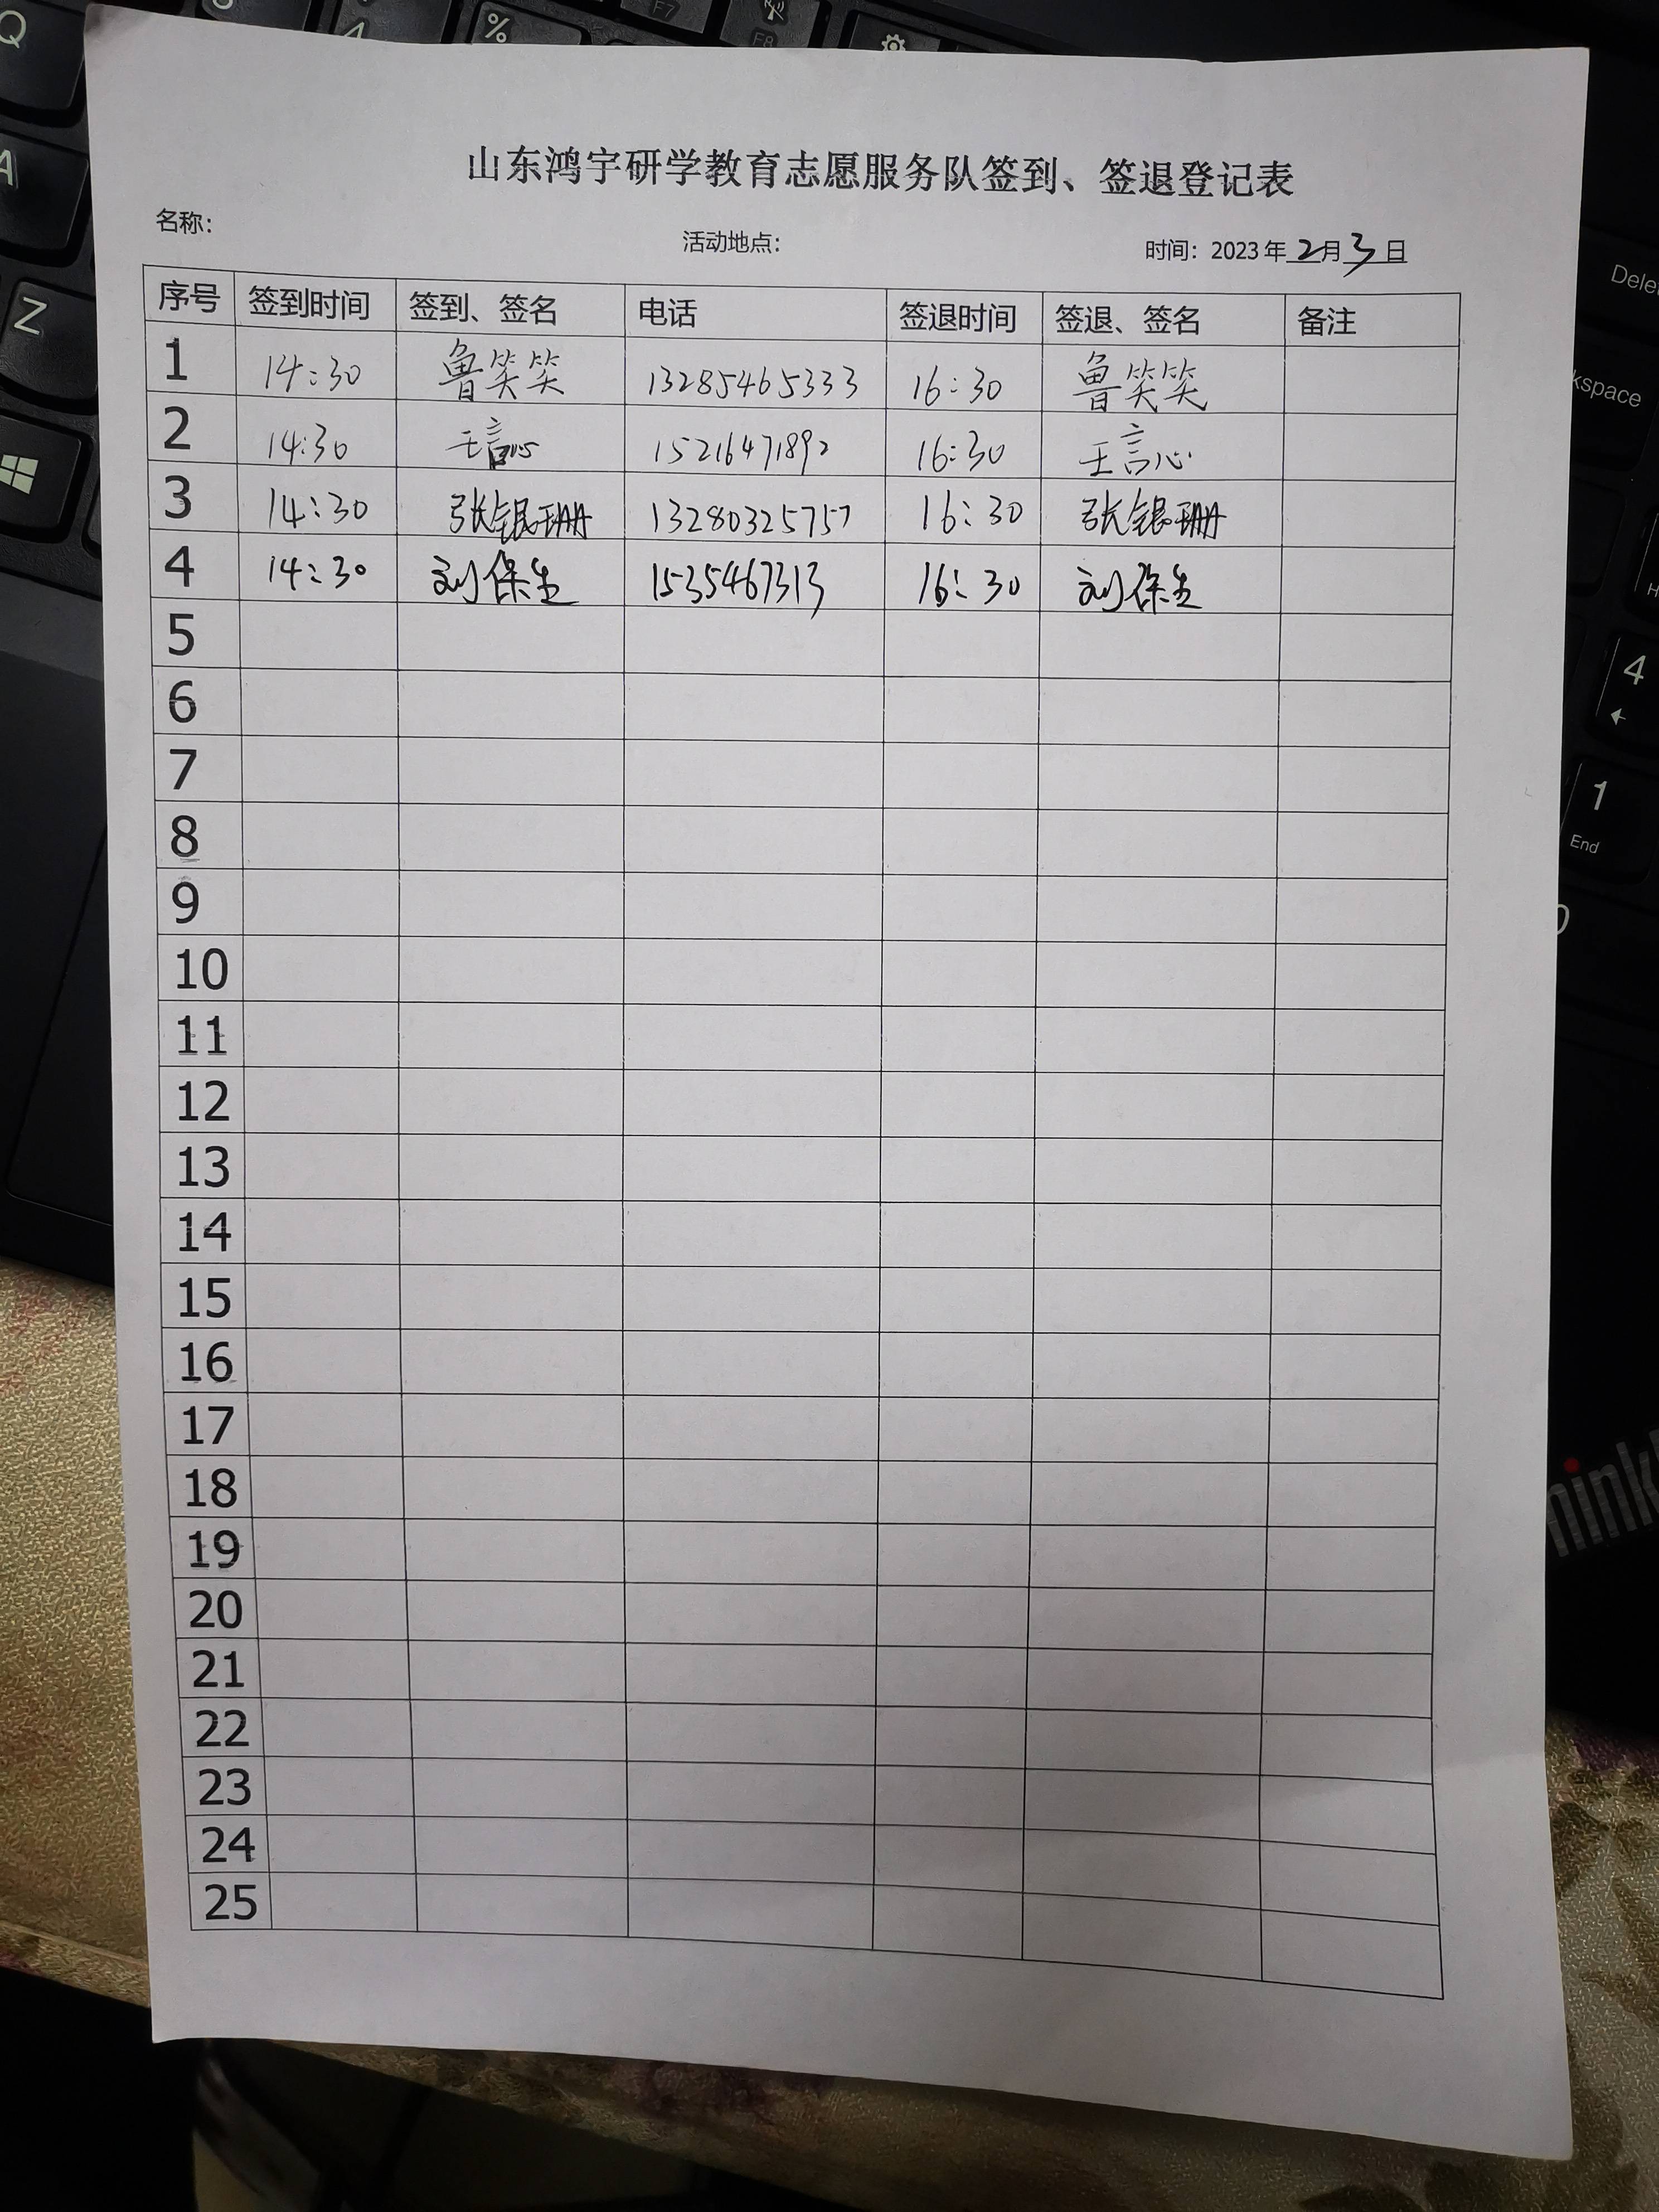 山东鸿宇研学教育志愿服务队签到、签退登记表
名称:
活动地点:
时间: 2023 年 2 月 3 日
序号 签到时间 签到、签名 电话 签退时间 签退、签名 备注
1 14:30 鲁笑笑 13285465333 16:30 鲁笑笑
2 14:30 王言心 15216471892 16:30 王言心
3 14:30 张银珊 13280325757 16:30 张银珊
4 14:30 刘保生 1535467313 16:30 刘保生
5
6
7
8
9
10
11
12
13
14
15
16
17
18
19
20
21
22
23
24
25
Q
A
Z
%
F7
F8
4
1
End